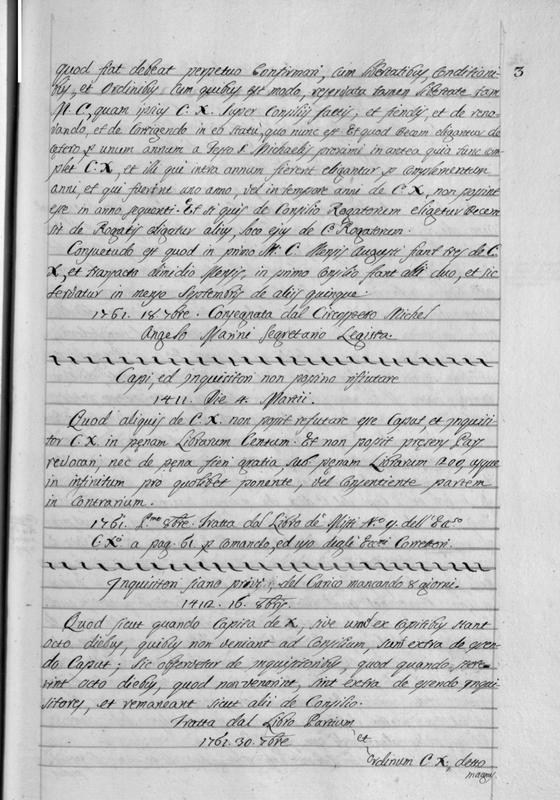 3
quod fiat debeat perpetuo Confirmari, cum libertatibus, Conditioni-
bus, et Ordinibus cum quibus est modo, reservata tamen libertate tam
M. C., quam ipsius C. X. super Consiliis factis, et fiendis, et de reno-
vando, et de Corrigendo in eo statu, quo nunc est. Et quod Decem eligantur de
cetero p unum annum a Festo S. Michaelis proximi in antea quia tunc com-
plet C. X., et illi qui intra annum fierent eligantur p complementum
anni, et qui fuerint uno anno, vel in tempore anni de C. X., non possint
esse in anno sequenti. Et si quis de Consilio Rogatorum eligetur Decem
sit de Rogatis eligatur alius, loco ejus de C. Rogatorum.
Consuetudo est quod in primo M. C. Mensis Augusti fiant tres de C.
X., et transacto dimidio Mensis, in primo Consilio fiant alii duo, et sic
servatur in mense Septembris de aliis quinque.
1761. 18. 7bre. Consegnata dal Circospetto Michel
Angelo Marini Segretario Legista.
Capi, ed Inquisitori non possino refiutare
1411. Die 4. Martii.
Quod aliquis de C. X. non possit refutare esse Caput, et Inquisi-
tor C. X. in pęnam Librarum Centum. Et non possit presens Pars
revocari, nec de pęna fieri gratia sub pęnam Librarum 200, usque
in infinitum pro quolibet ponente, vel Consentiente partem
in Contrarium.
1761. Pmo 8bre. Tratta dal Libro de Misti No 9. dell' Ecc.so
C. Xci a pag. 61. p comando, ed uso degli Ecc.mi Correttori.
Inquisitori siano privi; del Carico mancando 8 giorni.
1412. 16. 8bris.
Quod sicut quando Capita de X., sive unus ex Capitibus stant
octo diebus, quibus non veniant ad Consilium, sunt extra de essen-
do Caput; sic observetur de Inquisitoribus, quod quando stete-
rint octo diebus, quod non venerint, sint extra de essendo Inqui-
sitores, et remaneant sicut alii de Consilio.
Tratta dal Libro Partium
1761. 30. 7bre
et
Ordinum C. X., detto
magnus